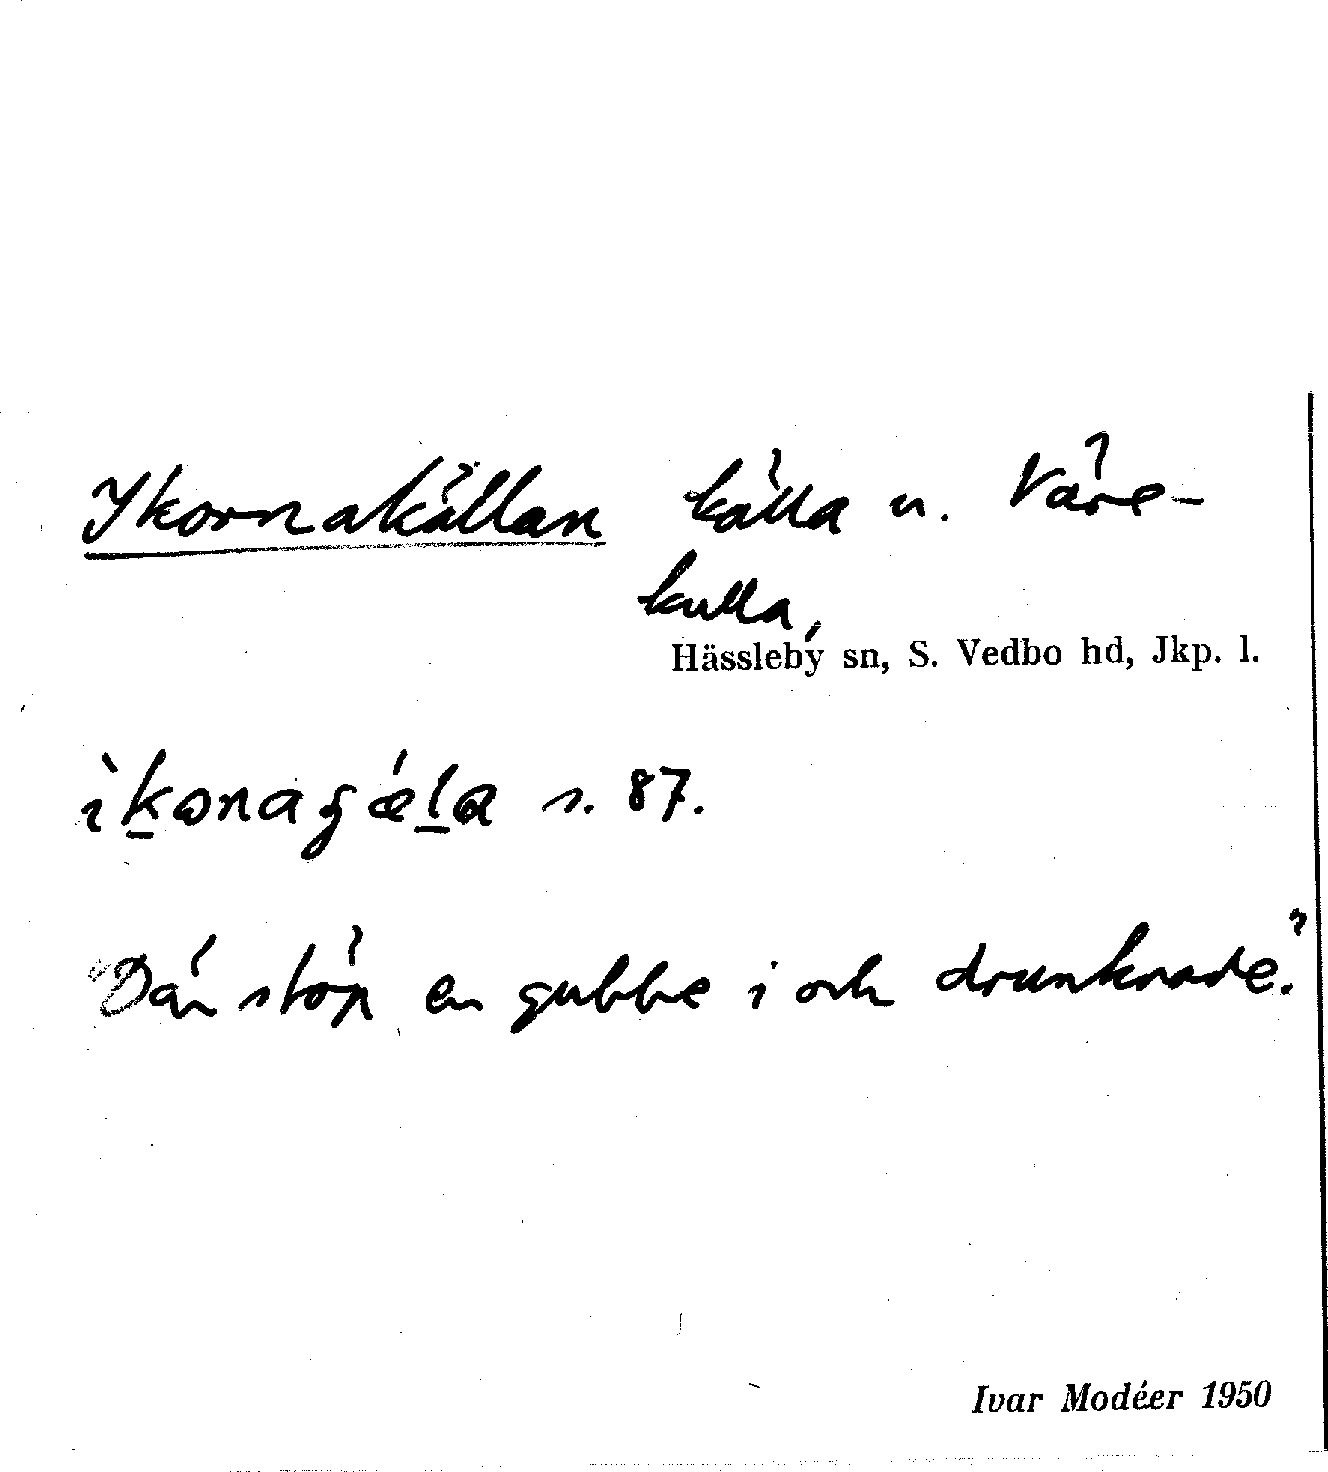 Ykornakällan källa u. Väre-
kulla,
Hässleby sn, S. Vedbo hd, Jkp. l.
s. 87.
"Där stöp en gubbe i och drunknade."
Ivar Modéer 1950